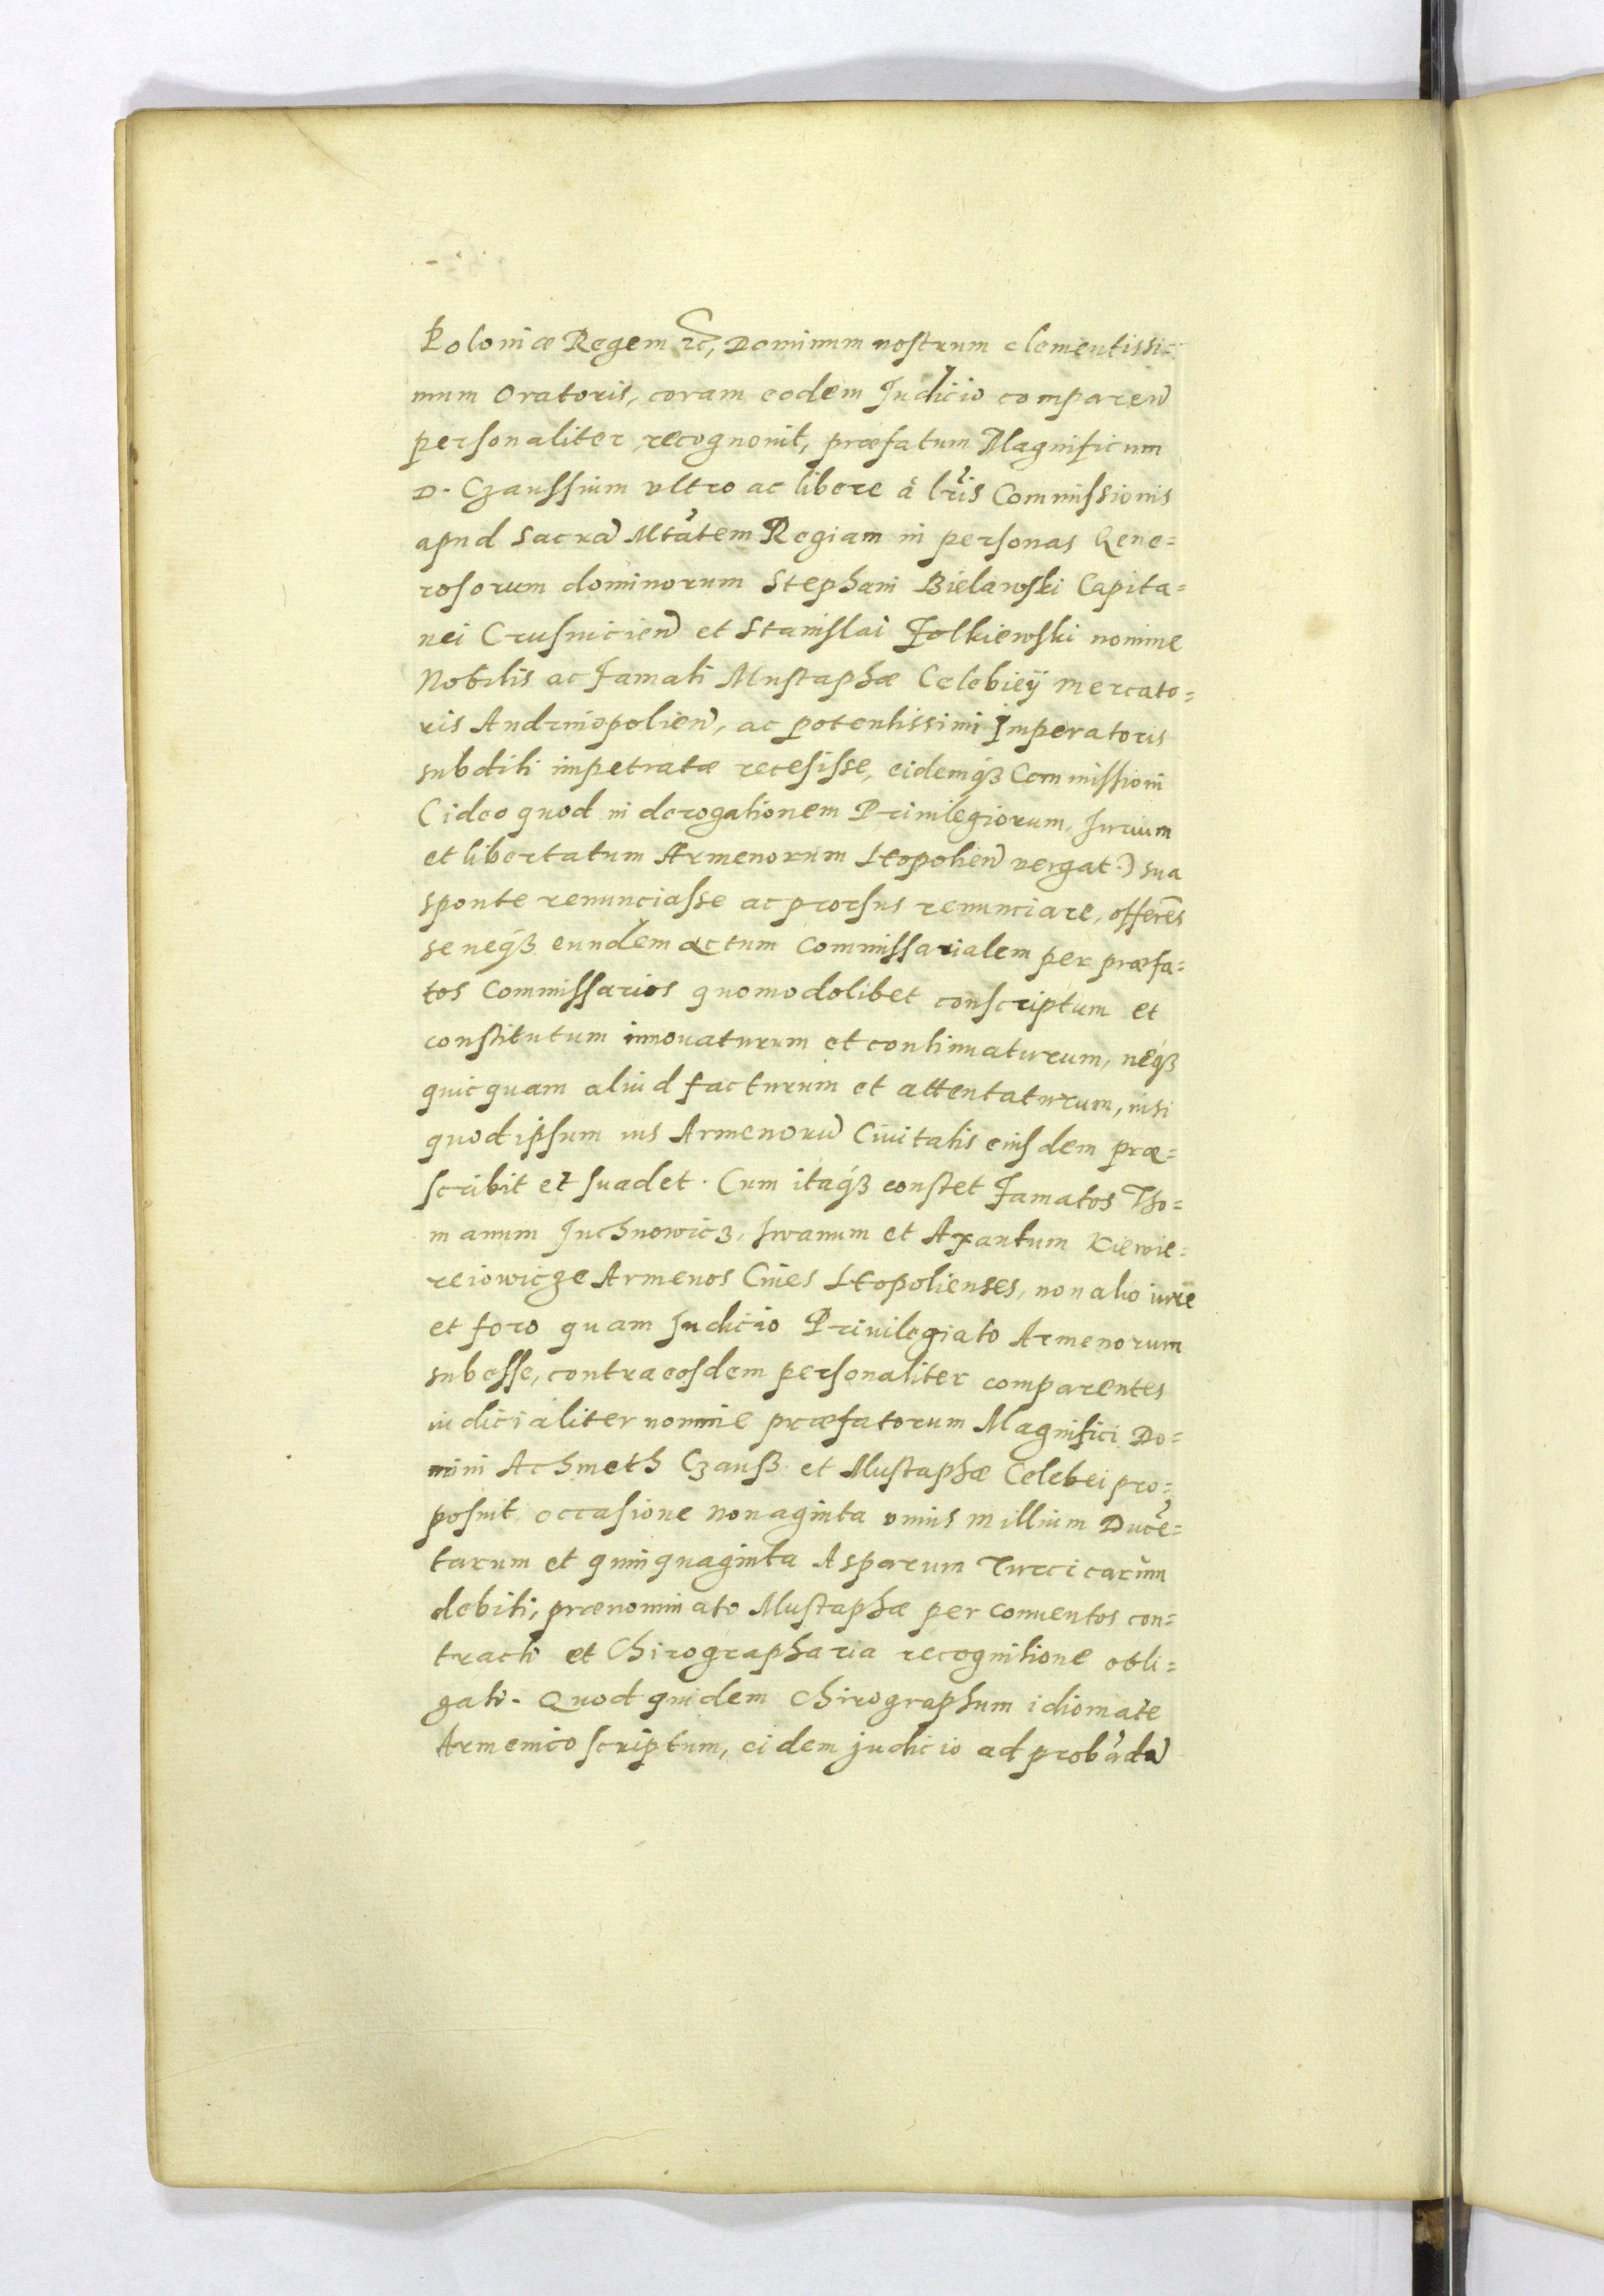 Poloniæ Regem &c, Dominum nostrum clementissi=
mum Oratoris, coram eodem Judicio comparen̄
personaliter recognouit, præfatum Magnificum
D. Czaussium vltro ac libere á lr̃is Commissionis
apud Sacrã Mtãtem Regiam in personas Gene=
rosorum dominorum Stephani Bielawski Capita=
nei Crusuicien̄ et Stanislai Zolkiewski nomine
Nobilis ac Famati Mustaphæ Celebieÿ mercato=
ris Andrinopolien̄, ac potentissimi Imperatoris
subditi impetratæ recesisse, eidemq₃ Commissioni
(ideo quod in derogationem Priuilegiorum, Jurium
et libertatum Armenorum Leopolien̄ vergat.) sua
sponte renunciasse ac prorsus renunciare, offerẽs
se neq₃ eundem actum Commissarialem per præfa=
tos Commissarios quomodolibet conscriptum et
constitutum innouaturum et continuaturum, neq₃
quicquam aliud facturum et attentaturum, nisi
quod ipsum ius Armenorũ Ciuitatis eiusdem præ=
scribit et suadet. Cum itaq₃ constet Famatos Tho=
manum Juchnowicz, Iwanum et Axantum Kiewie=
reiowicze Armenos Ciues Leopolienses, non alio iure
et foro quam Judicio Priuilegiato Armenorum
subesse, contra eosdem personaliter comparentes
iudicialiter nomine præfatorum Magnifici Do=
mini Achmeth Czauß et Mustaphæ Celebei pro=
posuit, occasione nonaginta vnius millium Duce=
tarum et quinquaginta Asparum Turcicarum
debiti, prænominato Mustaphæ per conuentos con=
tracti et Chirographaria recognitione obli=
gati. Quod quidem Chirographum idiomate
Armenico scriptum, eidem judicio ad probãdã